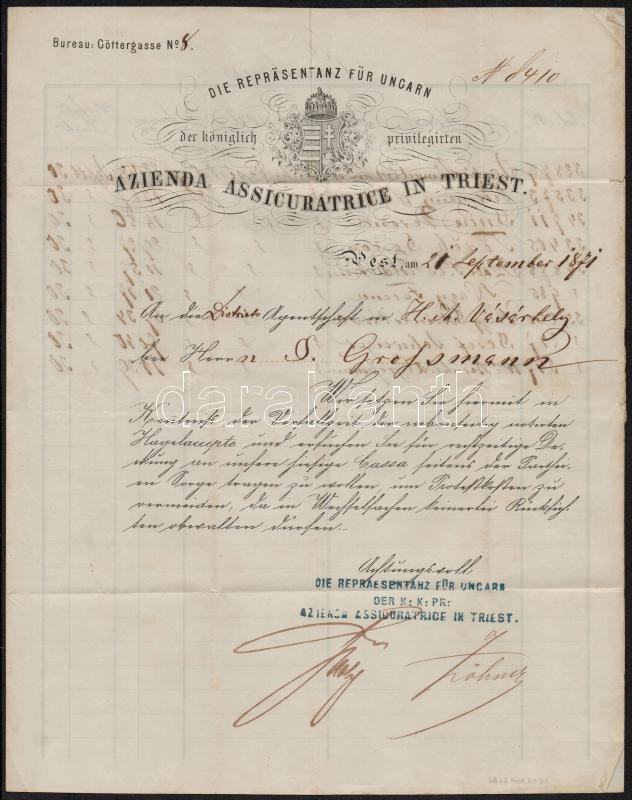 Bureau: Göttergasse No 8.
N 8410
DIE REPRÄSENTANZ FÜR UNGARN
der königlich privilegirten
AZIENDA ASSICURATRICE IN TRIEST.
Pest, am 21 September 1871
An die Districts Agentschaft in H. M. Vásárhely
bei Herrn S. Grossmann
Wir setzen Sie hiermit in
Kenntniß der Verfallzeit der nebenseitig notirten
Hagelaccepte und ersuchen Sie für rechtzeitige De-
ckung an unsere hiesige Cassa seitens der Partei-
en Sorge tragen zu wollen, um Protestkosten zu
vermeiden, da in Wechselsachen keinerlei Rücksich-
ten obwalten dürfen.
Achtungsvoll
DIE REPRAESENTANZ FÜR UNGARN
DER K: K: PR:
AZIENDA ASSICURATRICE IN TRIEST.
darabanth